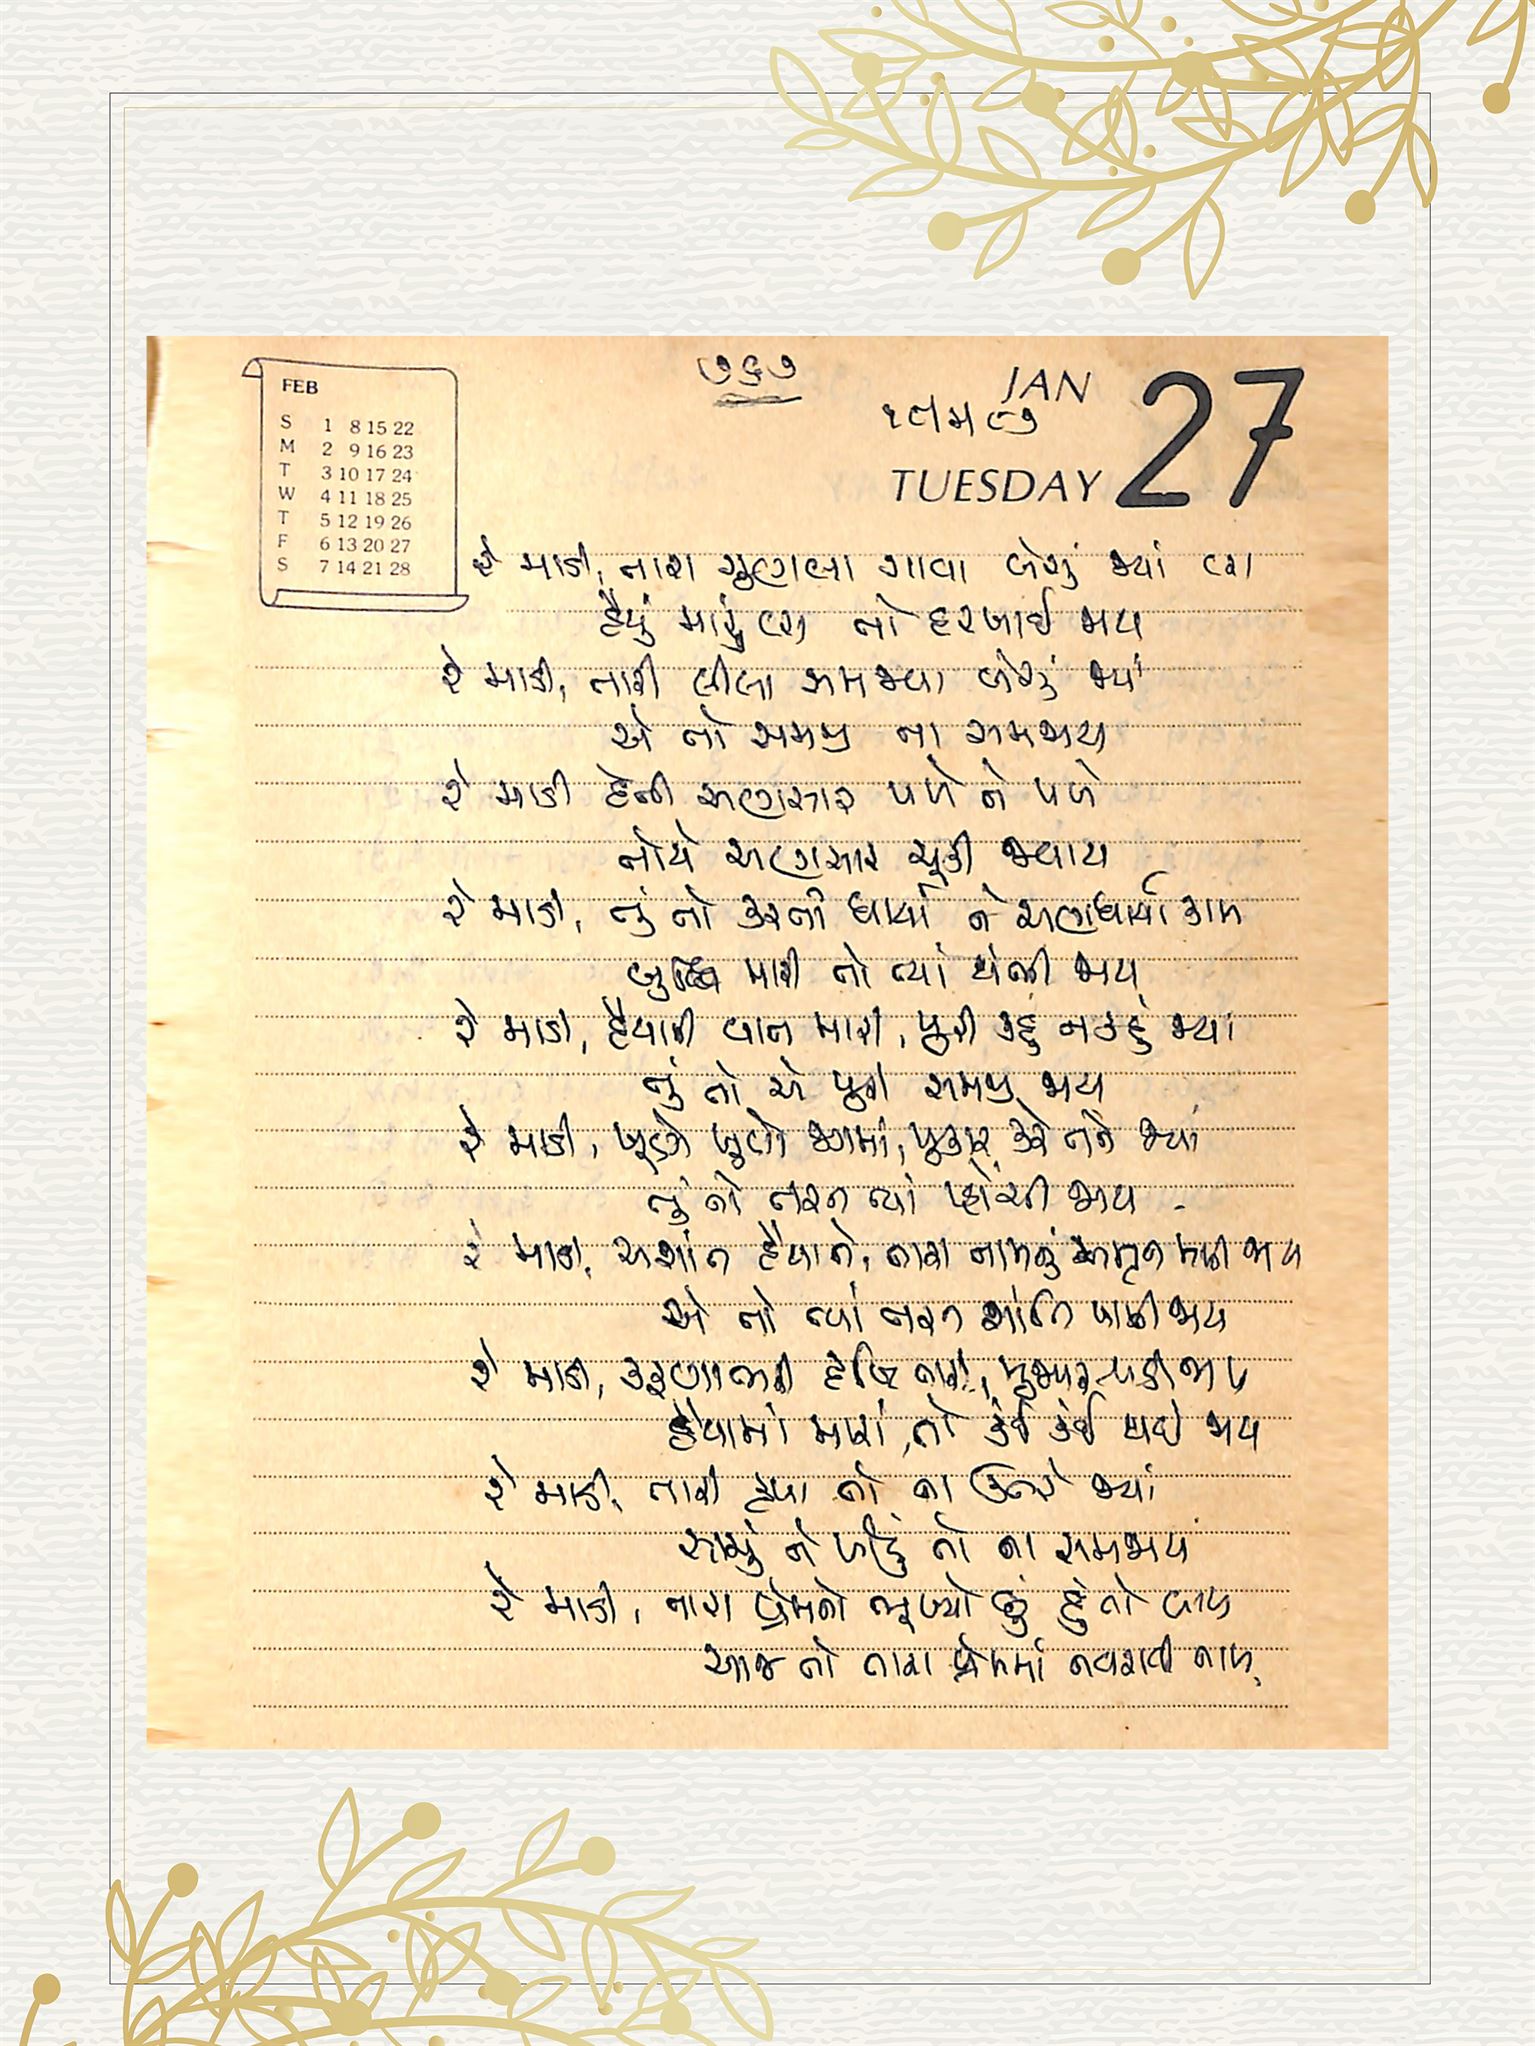 ૭૬૭
JAN
27
TUESDAY
FEB
S 1 8 15 22
M 2 9 16 23
T 3 10 17 24
W 4 11 18 25
T 5 12 19 26
F 6 13 20 27
S 7 14 21 28
રે માડી, તારા ગુણલા ગાવા બેસું જ્યાં
હૈયું મારું તો હરખાઈ જાય
રે માડી, તારી લીલા સમજવા બેસું જ્યાં
એ તો સમજી ના સમજાય
રે માડી દેતી અણસાર પળે ને પળે
તોયે અણસાર ચૂકી જવાય
રે માડી, તું તો કરતી ધાર્યા ને અણધાર્યા કામ
બુદ્ધિ મારી તો ત્યાં થંભી જાય
રે માડી, હૈયાની વાત મારી, પૂરી કહું ન કહું જ્યાં
તું તો એ પૂરી સમજી જાય
રે માડી, ખૂણે ખૂણેથી જગમાં, પુકાર કરે તને જ્યાં
તું તો તરત ત્યાં પ્હોંચી જાય
રે માડી, અશાંત હૈયાને, તારા નામનું અમૃત મળી જાય
એ તો ત્યાં તરત શાંતિ પામી જાય
રે માડી, કરુણાભરી દૃષ્ટિ તારી, મુજપર પડી જાય
હૈયામાં મારાં, તો કંઈ કંઈ થઈ જાય
રે માડી, તારી કૃપા તો ના ઉતરે જ્યાં
સાચું ને ખોટું તો ના સમજાય
રે માડી, તારા પ્રેમનો ભૂખ્યો છું હું તો બાળ
આજ તો તારા પ્રેમમાં નવરાવી નાખ